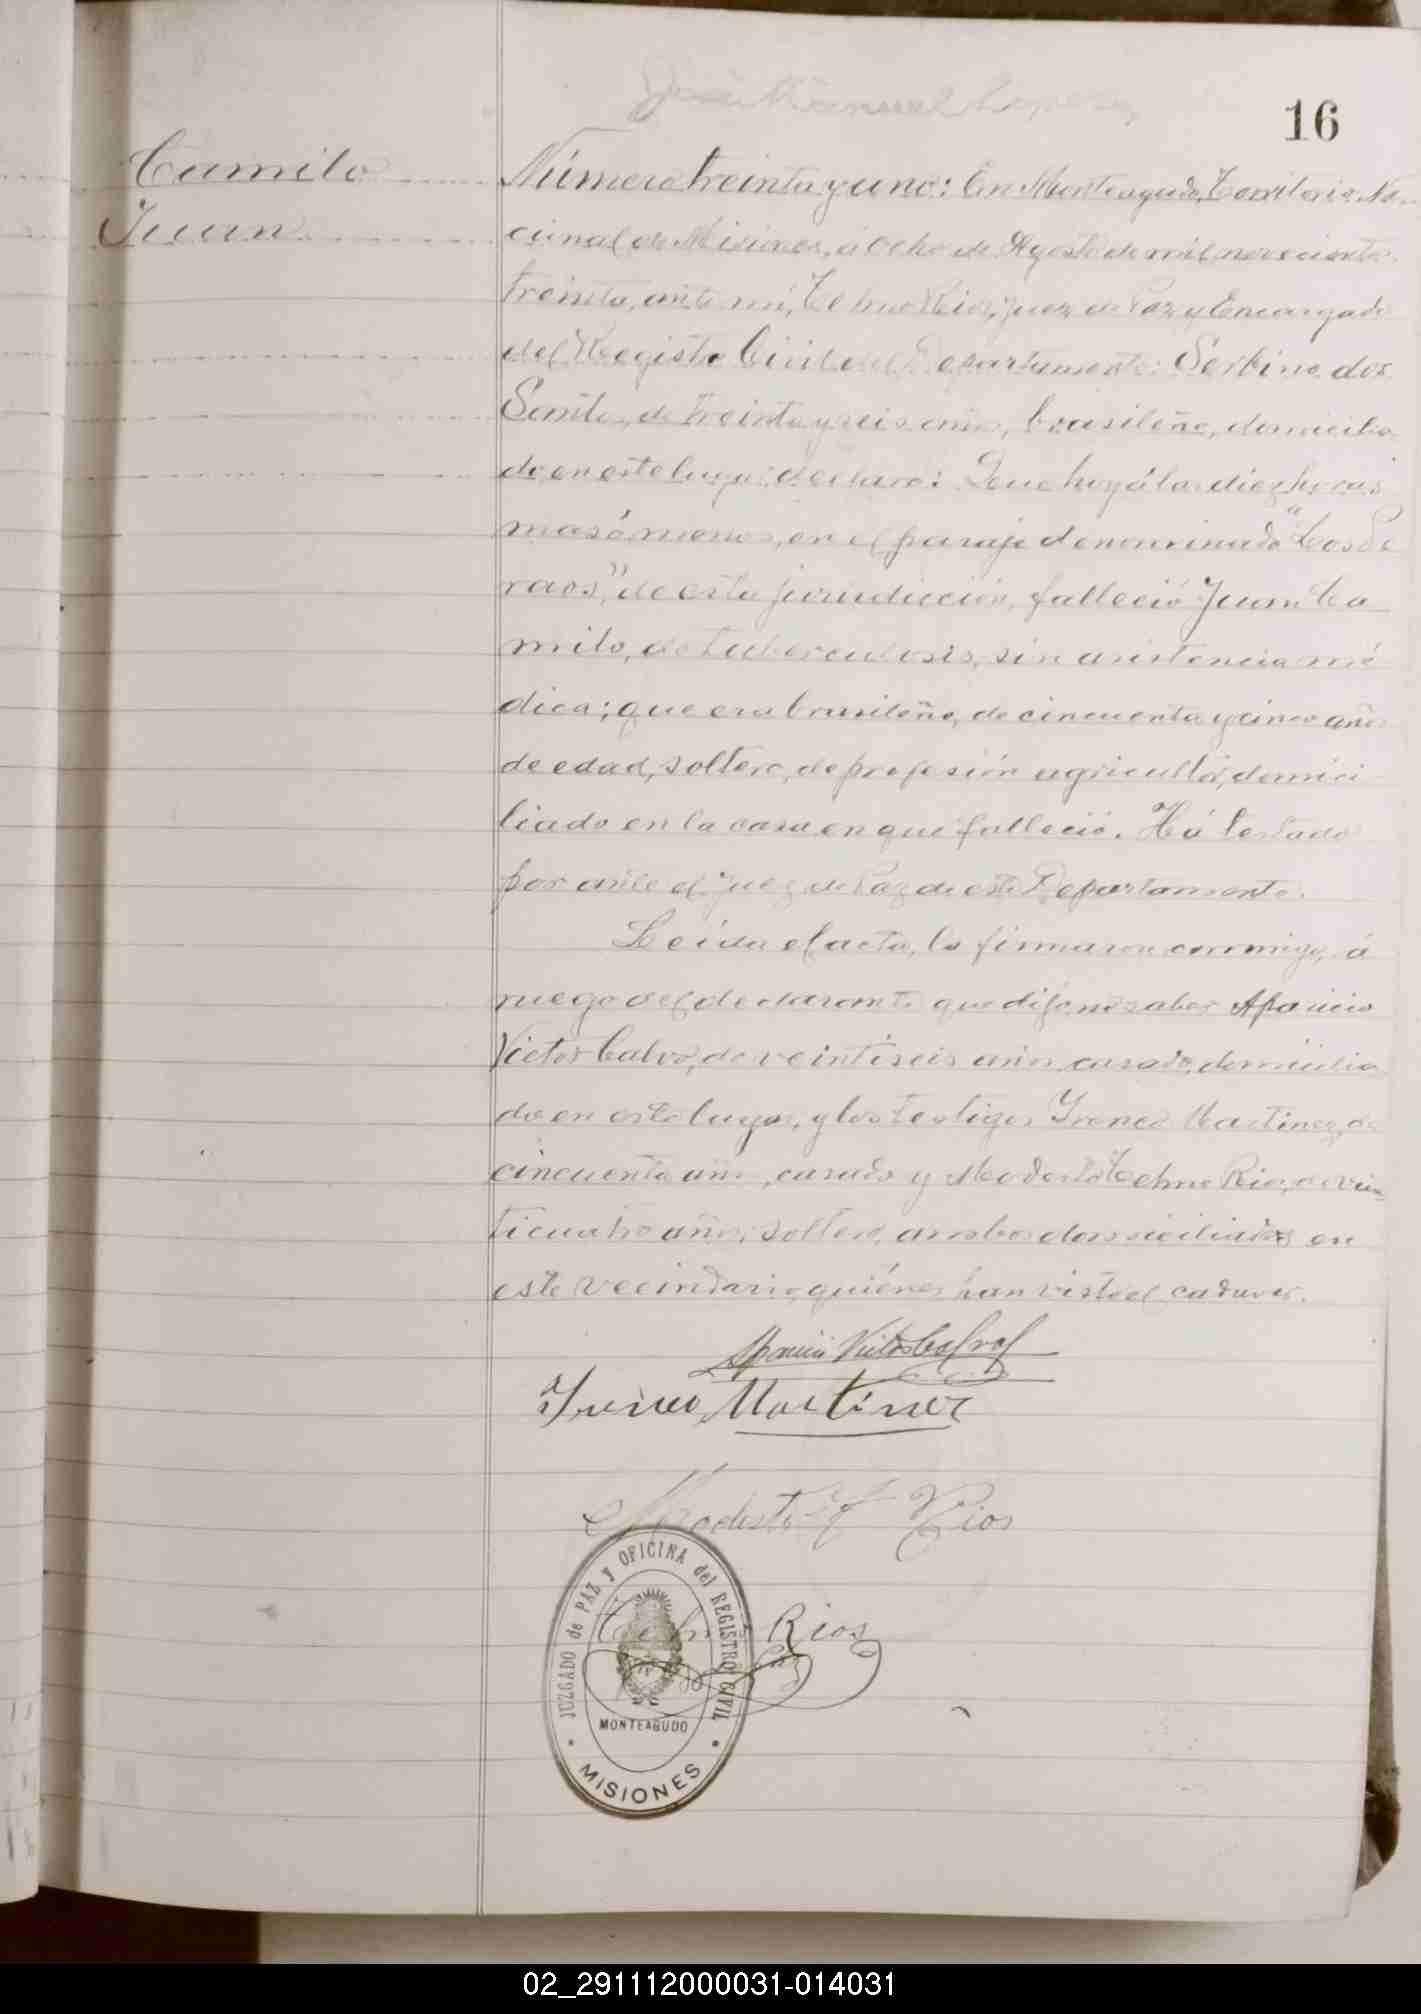 José Manuel
16
Camilo
Juan
Número treinta y uno: En Monteagudo, Territorio Na-
cional de Misiones, á ocho de Agosto de mil novecientos
treinta, ante mí, Telmo Rios, Juez de Paz y Encargado
del Registro Civil del Departamento: Serbino dos
Santos, de treinta y seis años, brasileño, domicilia
do en este lugar declaró: Que hoy á las diez horas
mas ó menos, en el paraje denominado "Los
raos", de esta jurisdicción, falleció Juan Ca
milo, de tuberculosis, sin asistencia mé
dica; que era brasileño, de cincuenta y cinco años
de edad, soltero, de profesión agricultor, domici
liado en la casa en que falleció. Há testado
por ante el Juez de Paz de este Departamento.
Leída el acta, la firmaron conmigo, á
ruego del declarante que dijo no saber Aparicio
Victor Calvo, de veintiseis años casado, domicilia
do en este lugar, y los testigos Ireneo Martinez, de
cincuenta años, casado y Modesto Telmo Rios, de vein
ticuatro años, soltero, ambos domiciliados en
este vecindario, quiénes han visto el cadaver.
Aparicio Victor
Ireneo Martinez
Modesto T Rios
Telmo Rios
JUZGADO de PAZ y OFICINA del REGISTRO CIVIL
MONTEAGUDO
MISIONES
02_291112000031-014031